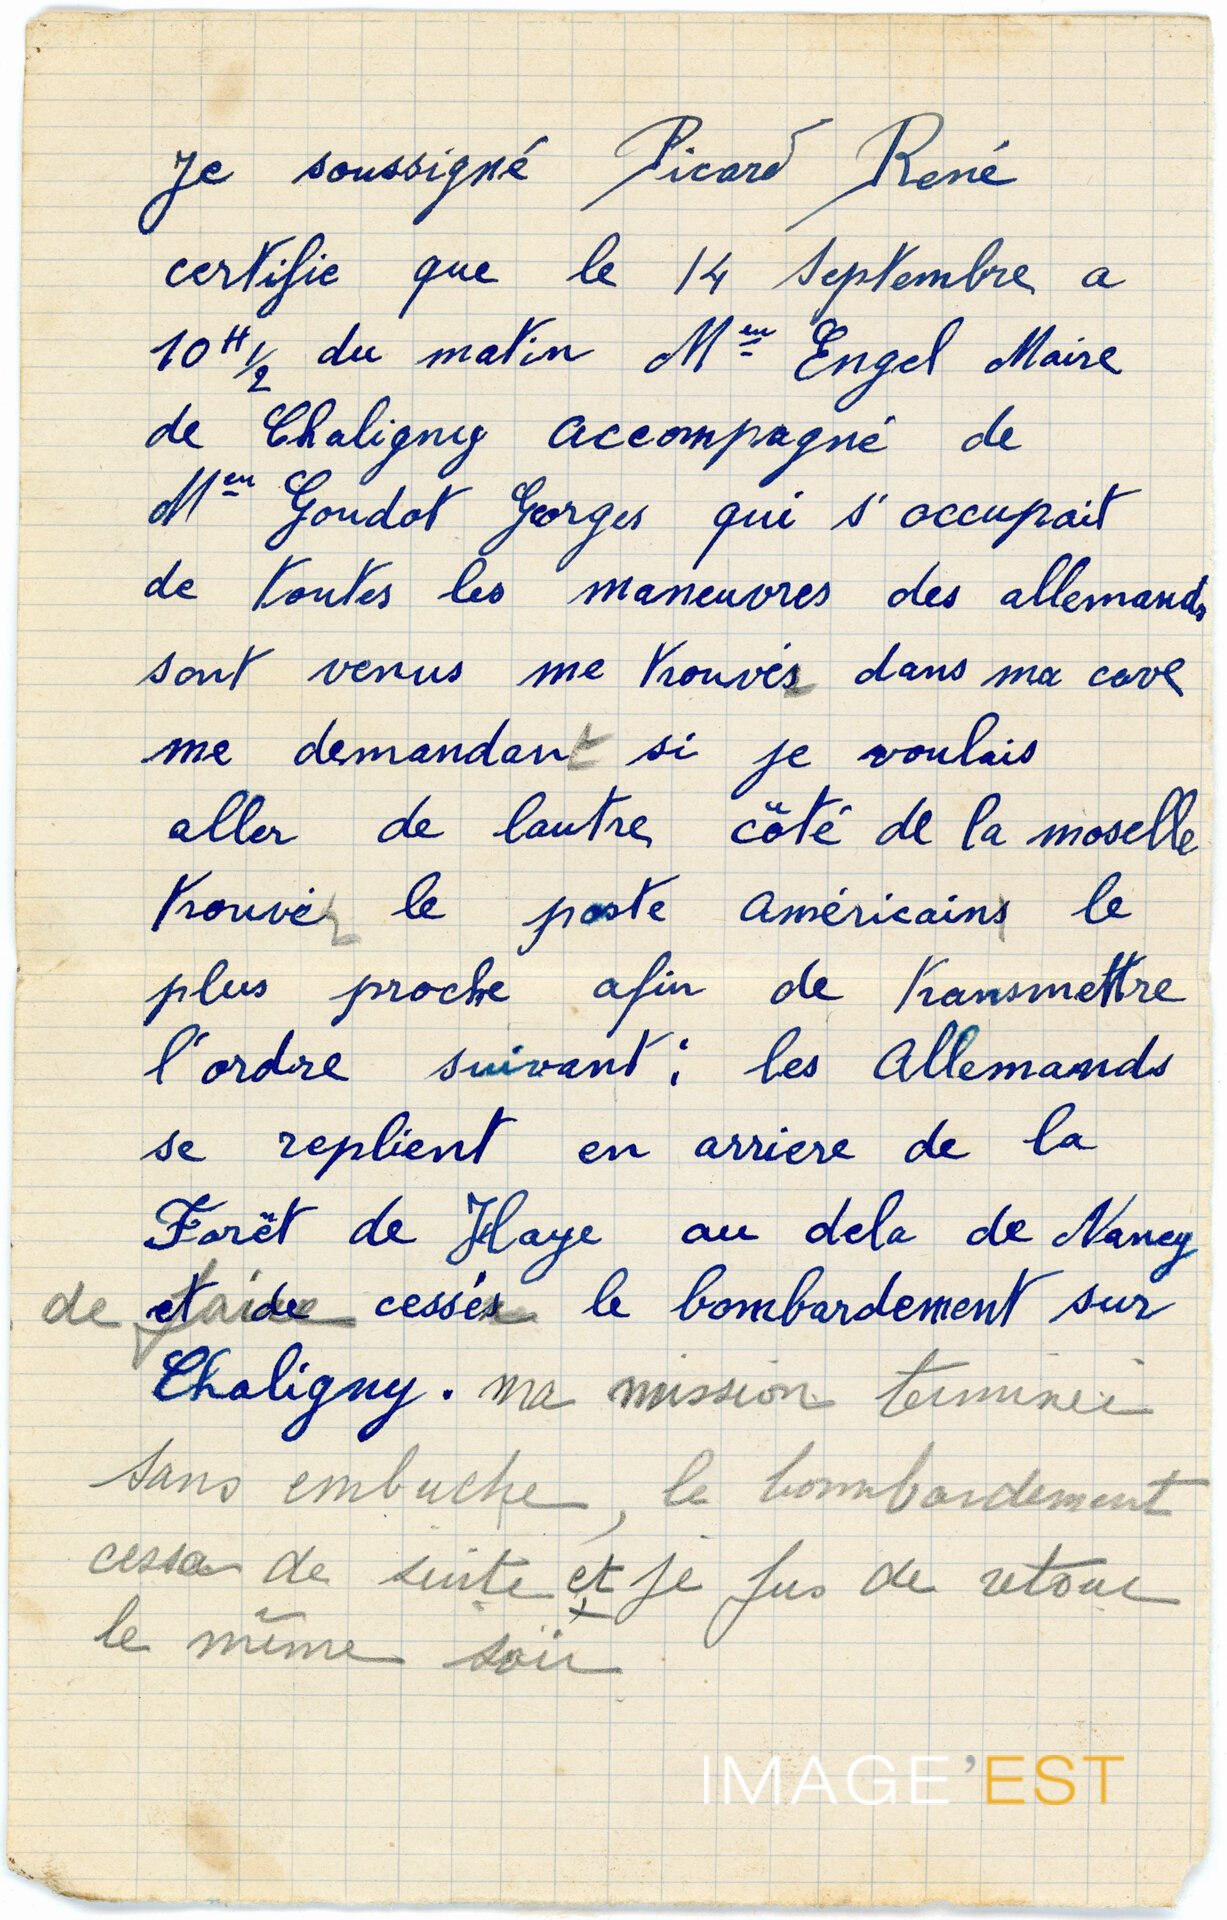 Je soussigné Picard René
certifie que le 14 Septembre a
10H1/2 du matin Meur Engel Maire
de Chaligny accompagné de
Meur Goudot Georges qui s'occupait
de toutes les maneuvres des allemands
sont venus me trouvér dans ma cave
me demandant si je voulais
aller de lautre côté de la moselle
trouvér le poste américain le
plus proche afin de transmettre
l'ordre suivant : les Allemands
se replient en arriere de la
Forêt de Haye au dela de Nancy
de faire cesser le bombardement sur
Chaligny. ma mission terminée
sans embuche, le bombardement
cessa de suite et je fus de retour
le même soir
IMAGE'EST